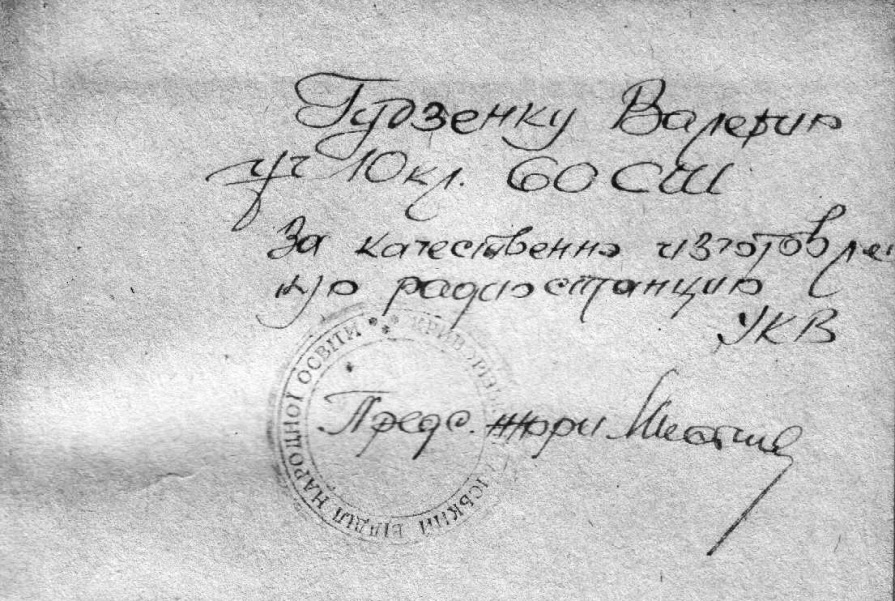 Гудзенку Валерию
уч 10 кл. 60 СШ
За качественно изготовлен
ную радиостанцию
УКВ
Предс. жюри
МІСЬКИЙ ВІДДІЛ НАРОДНОЇ ОСВІТИ